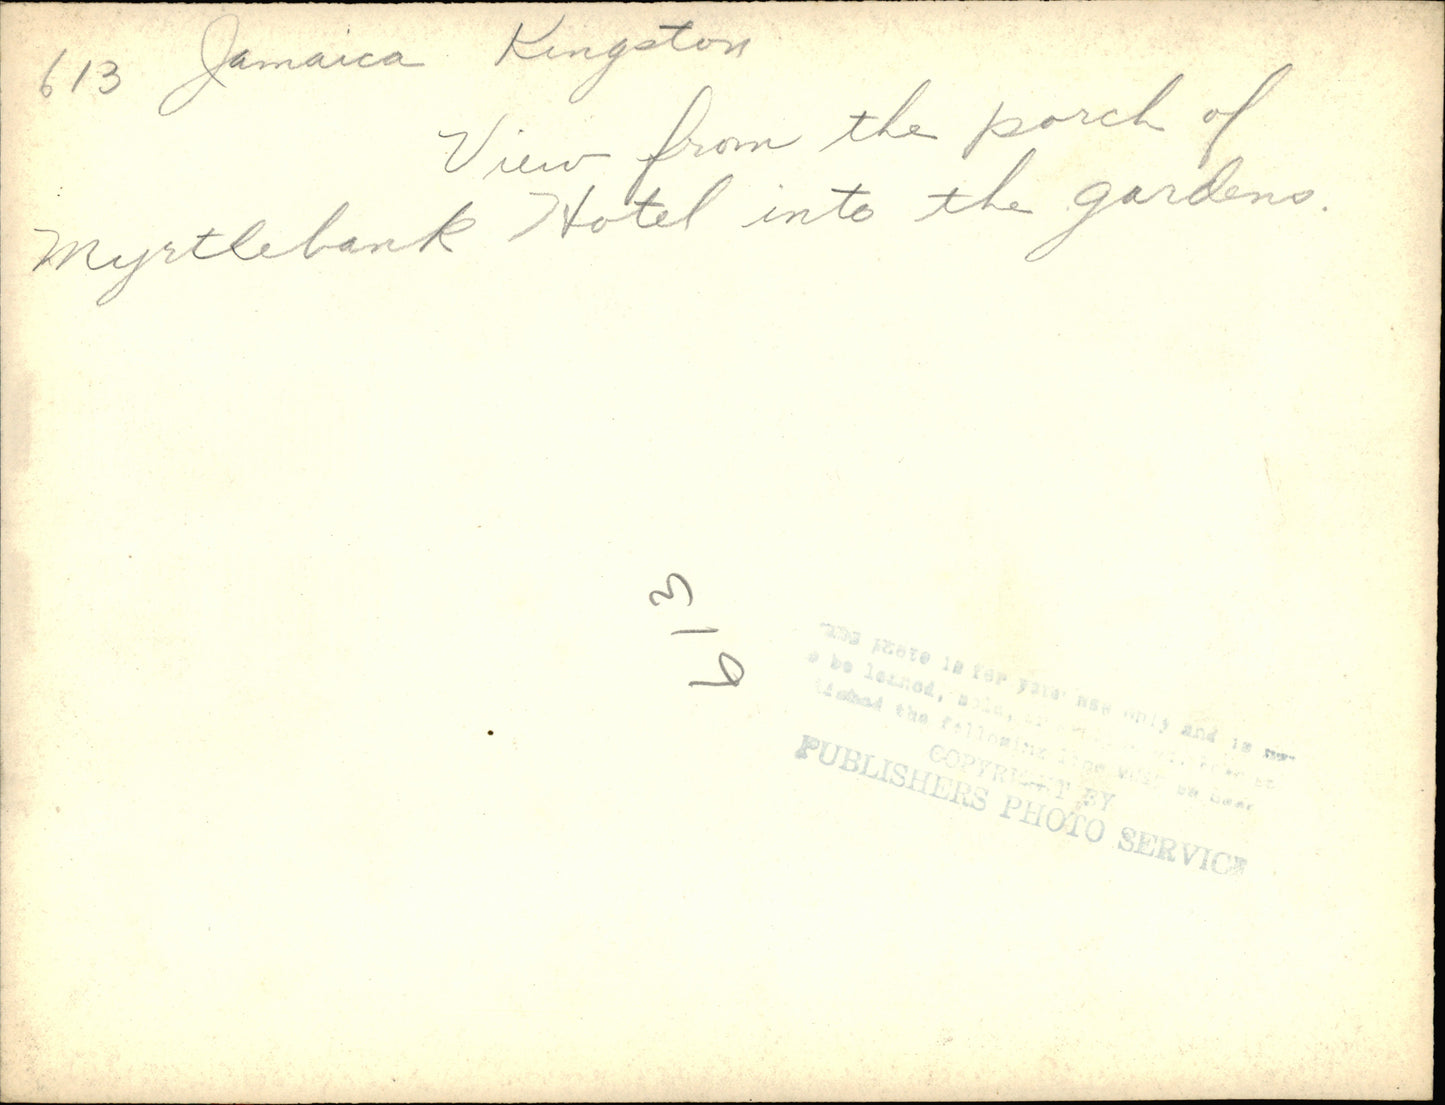 613 Jamaica Kingston
View from the porch of
Myrtlebank Hotel into the gardens.
613
photo is for your use only and is
be loaned, sold,
the following
COPYRIGHT BY
PUBLISHERS PHOTO SERVICE